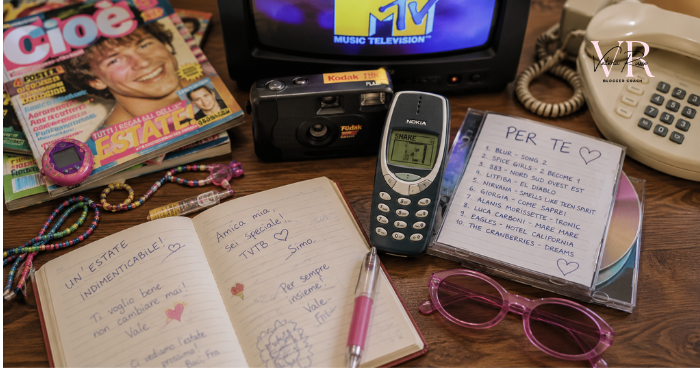 Cioè
POSTER
TUTTI I REGALI DELL'
ESTATE!
MTV
MUSIC TELEVISION
VR
BLOGGER COACH
Kodak
Kodak
NOKIA
PER TE ♡
1. BLUR - SONG 2
2. SPICE GIRLS - 2 BECOME 1
3. 883 - NORD SUD OVEST EST
4. LITFIBA - EL DIABLO
5. NIRVANA - SMELLS LIKE TEEN SPIRIT
6. GIORGIA - COME SAPREI
7. ALANIS MORISSETTE - IRONIC
8. LUCA CARBONI - MARE MARE
9. EAGLES - HOTEL CALIFORNIA
10. THE CRANBERRIES - DREAMS
UN'ESTATE
INDIMENTICABILE!
Ti voglio bene
non cambiare mai!
Vale
Ci vediamo l'estate
prossima!
Amica mia,
sei speciale!
TVTB ♡
Simo.
Per sempre
insieme!
Vale